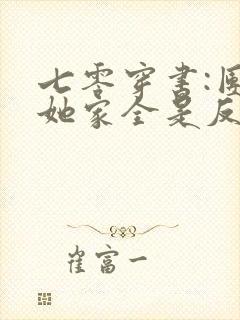 七零穿书:
她家全是反
崔富一